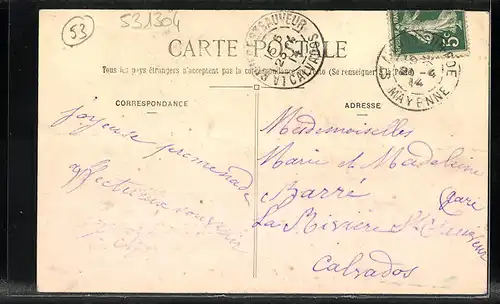 53
531304
CARTE POSTALE
Tous les pays étrangers n'acceptent pas la correspondance au recto (Se renseigner
CORRESPONDANCE
ADRESSE
SAUVEUR
CALVADOS
5c
MAYENNE
joyeuse promenade
affectueux souvenir
Mesdemoiselles
Marie et Madeleine
Barré
gare
La Rivière St Sauveur
Calvados